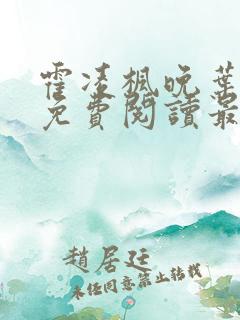 霍凌楓晚葉
免費閱讀最
趙居廷
未经同意禁止转载